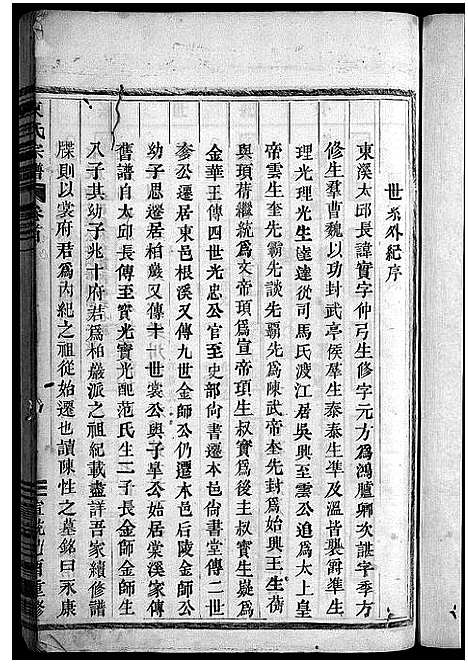 世系外紀序
東溪太邱長諱實字仲弓生修字元方為鴻臚卿次諶字季方
修生羣曹魏以功封武亭侯羣生泰泰生準及溫皆襲爵準生
理光理光生逵逵從司馬氏渡江居吳興至雲公追為太上皇
帝雲生奎先霸先談先霸先為陳武帝奎先封為始興王生蒨
與頊蒨繼統為文帝頊為宣帝頊生叔寶為後主叔寶生嶷為
金華王傳四世光忠公官至吏部尙書遷本邑尙書堂傳二世
參公遷居東邑根溪又傳九世金師公仍遷水邑后陵金師公
幼子思遷居柏巖又傳十一世裳公與子臯公始居棠溪家傳
舊譜自太邱長傳至實光實光配范氏生二子長金師金師生
八子其幼子兆十府君為柏巖派之祖紀載盡詳吾家續修譜
牒則以裳府君為內紀之祖從始遷也讀陳性之墓銘曰永康
氏宗譜
卷首